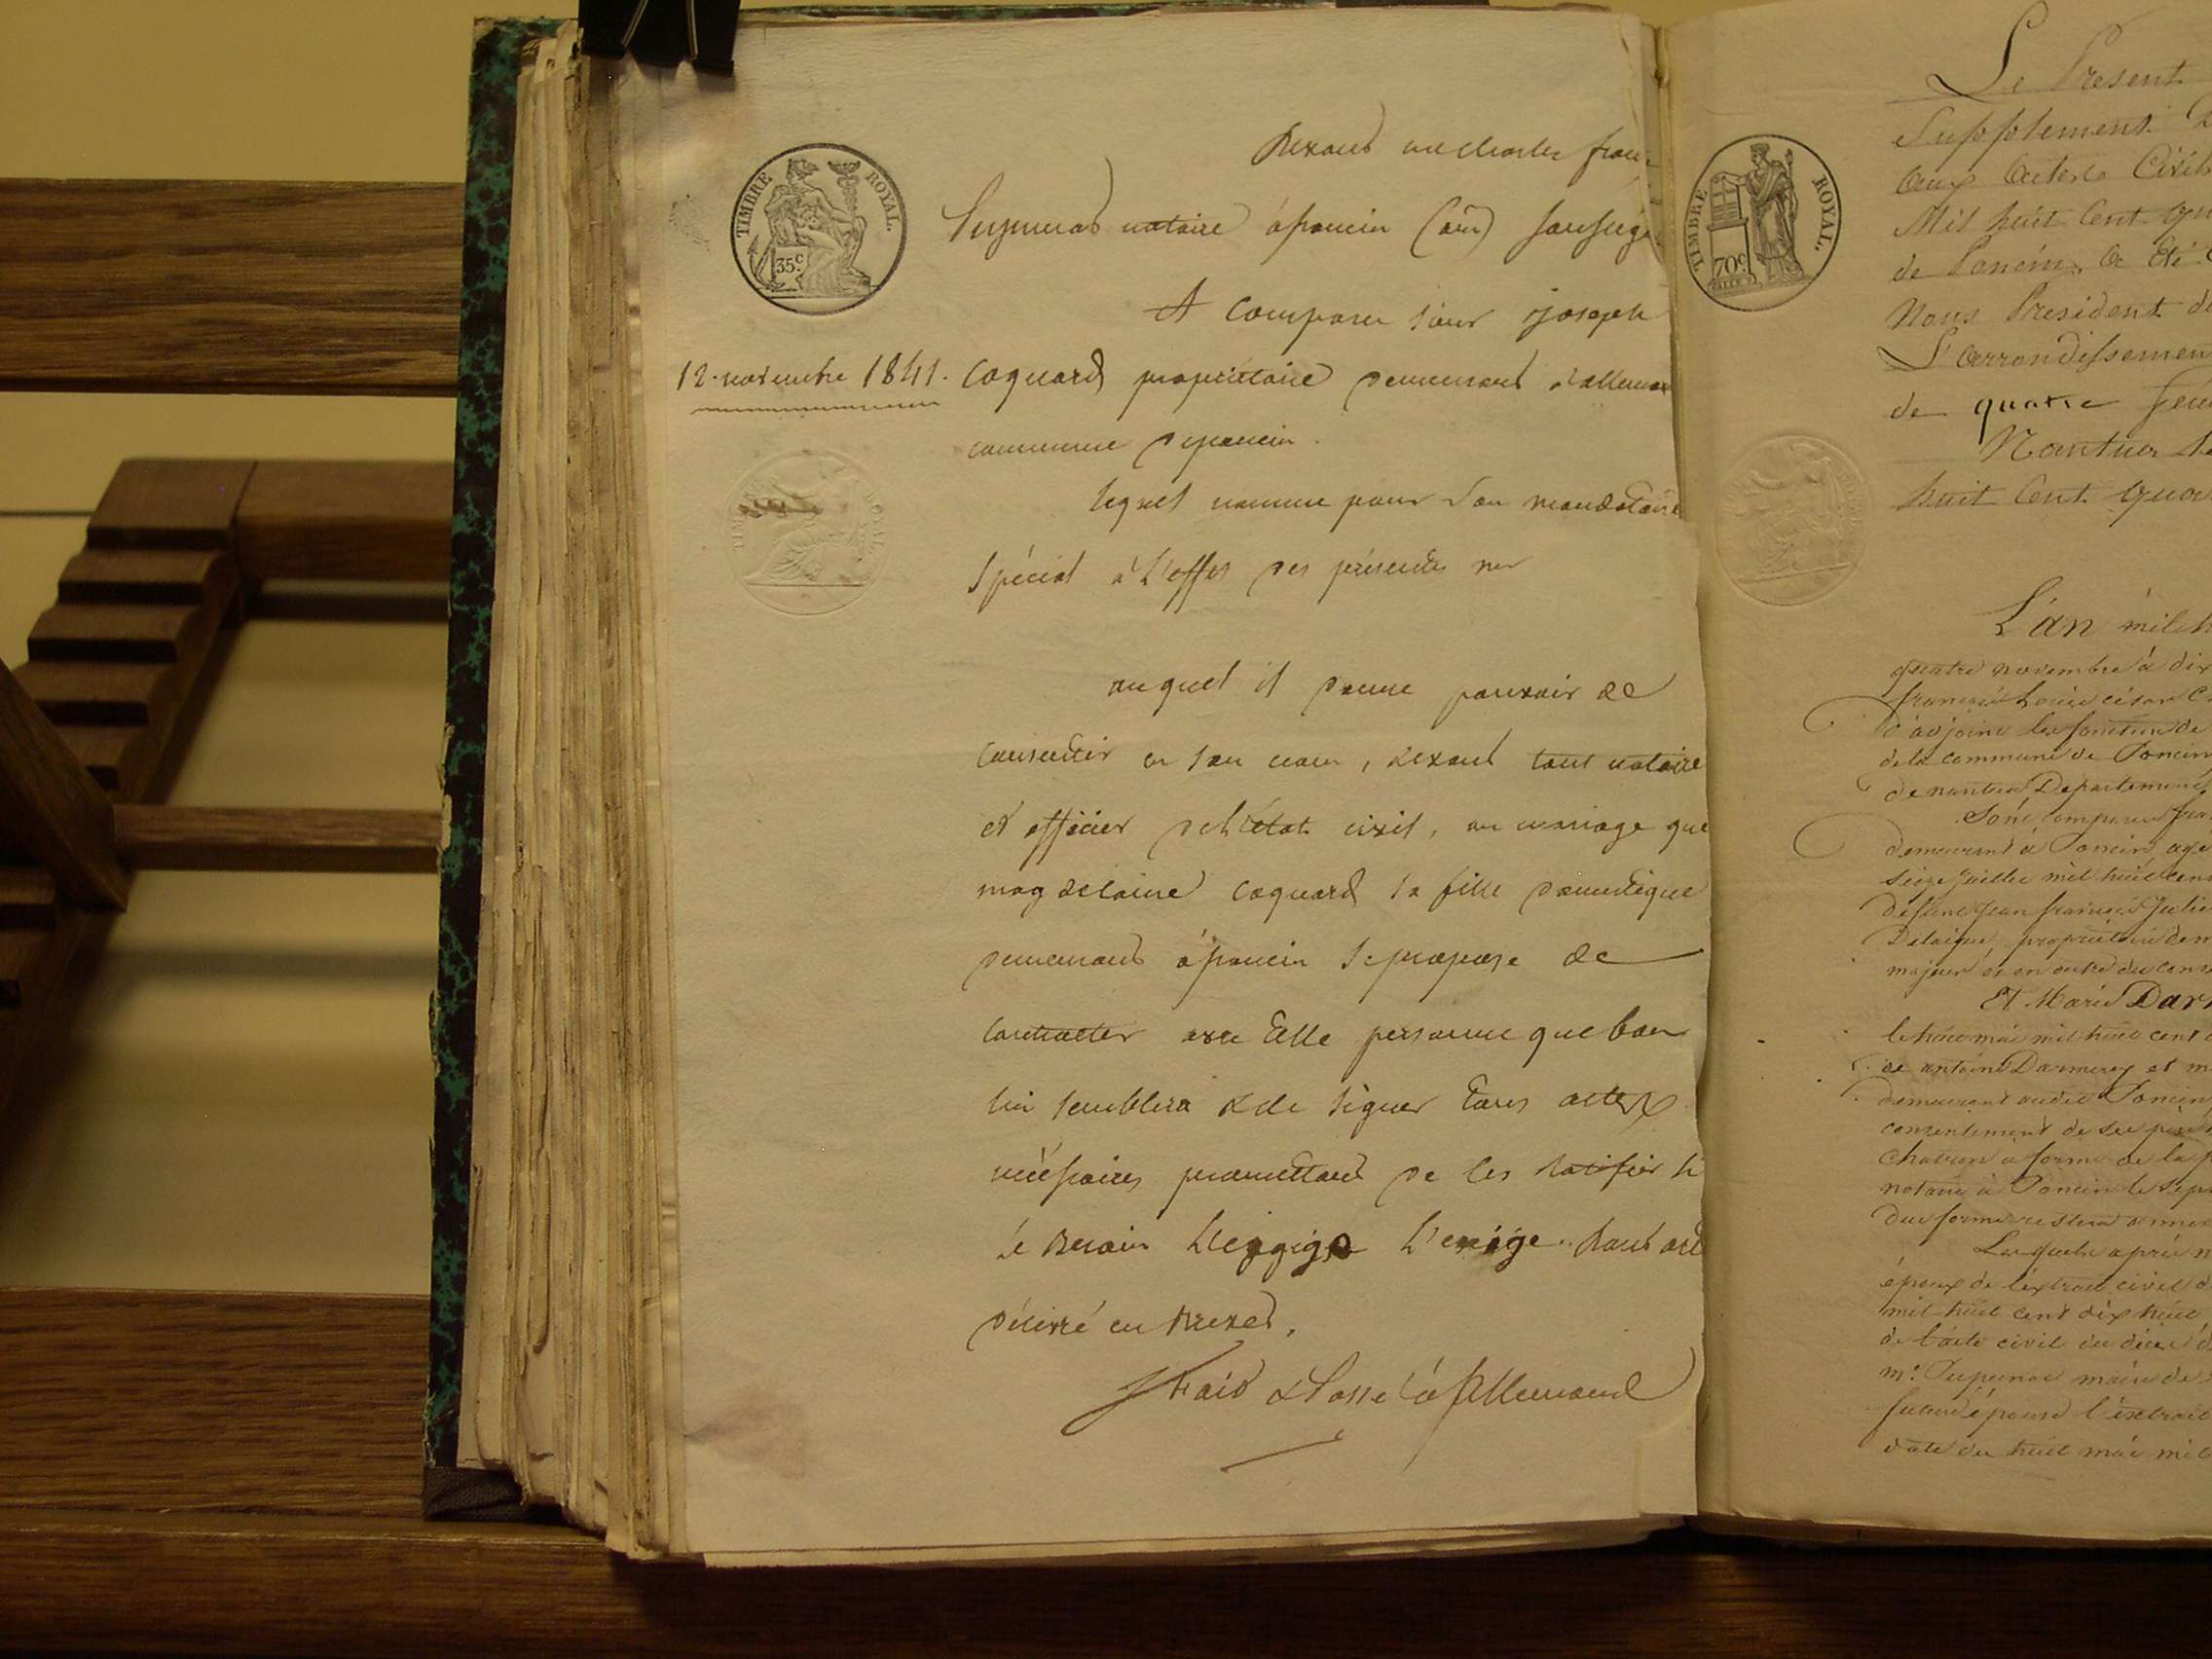 TIMBRE ROYAL.
35c
Devant me charles fran
Dupuna notaire à poncin (ain) soussig
A comparu sieur joseph
12. novembre 1841. coquard propriétaire demeurant à allemen
commune de poncin.
lequel nomme pour son mandataire
spécial à l'effet des présentes mr
auquel il donne pouvoir de
consentir en son nom, devant tout notaire
et officier de l'état civil, au mariage que
magdelaine coquard sa fille domestique
demeurant à poncin se propose de
contracter avec telle personne que bon
lui semblera & de signer tous actes
nécessaires promettant de les ratifier si
le besoin l'exige. dont acte
délivré en Brevet.
Fait & Passé à Allemand
TIMBRE ROYAL.
70c
Le Present
Supplement
aux Actes Civils
Mil huit Cent qua
de Poncin, a été
Nous President du
L'arrondissement
de quatre feui
Nantua le
huit Cent quar
L'an mil h
quatre novembre à dix
françois Louis césar
d'adjoint les fonctions de
de la commune de Poncin
de nantua Departement
Sont comparu fra
demeurant à Poncin agé
seize juillet mil huit cent
defunt jean françois Julie
Delaigue, propriétaire dem
majeur et en outre du cons
Et Marie Darm
le treize mai mil huit cent
de antoine Darmerey et m
demeurant audit Poncin
consentement de ses père
Chatron a forme de la p
notaire à Poncin le sept
due forme restera annex
Lesquels après n
époux de l'extrait civil d
mil huit cent dix huit
de l'acte civil du décès d
mr. Dupunas maire de
future épouse l'extrait
date du huit mai mil